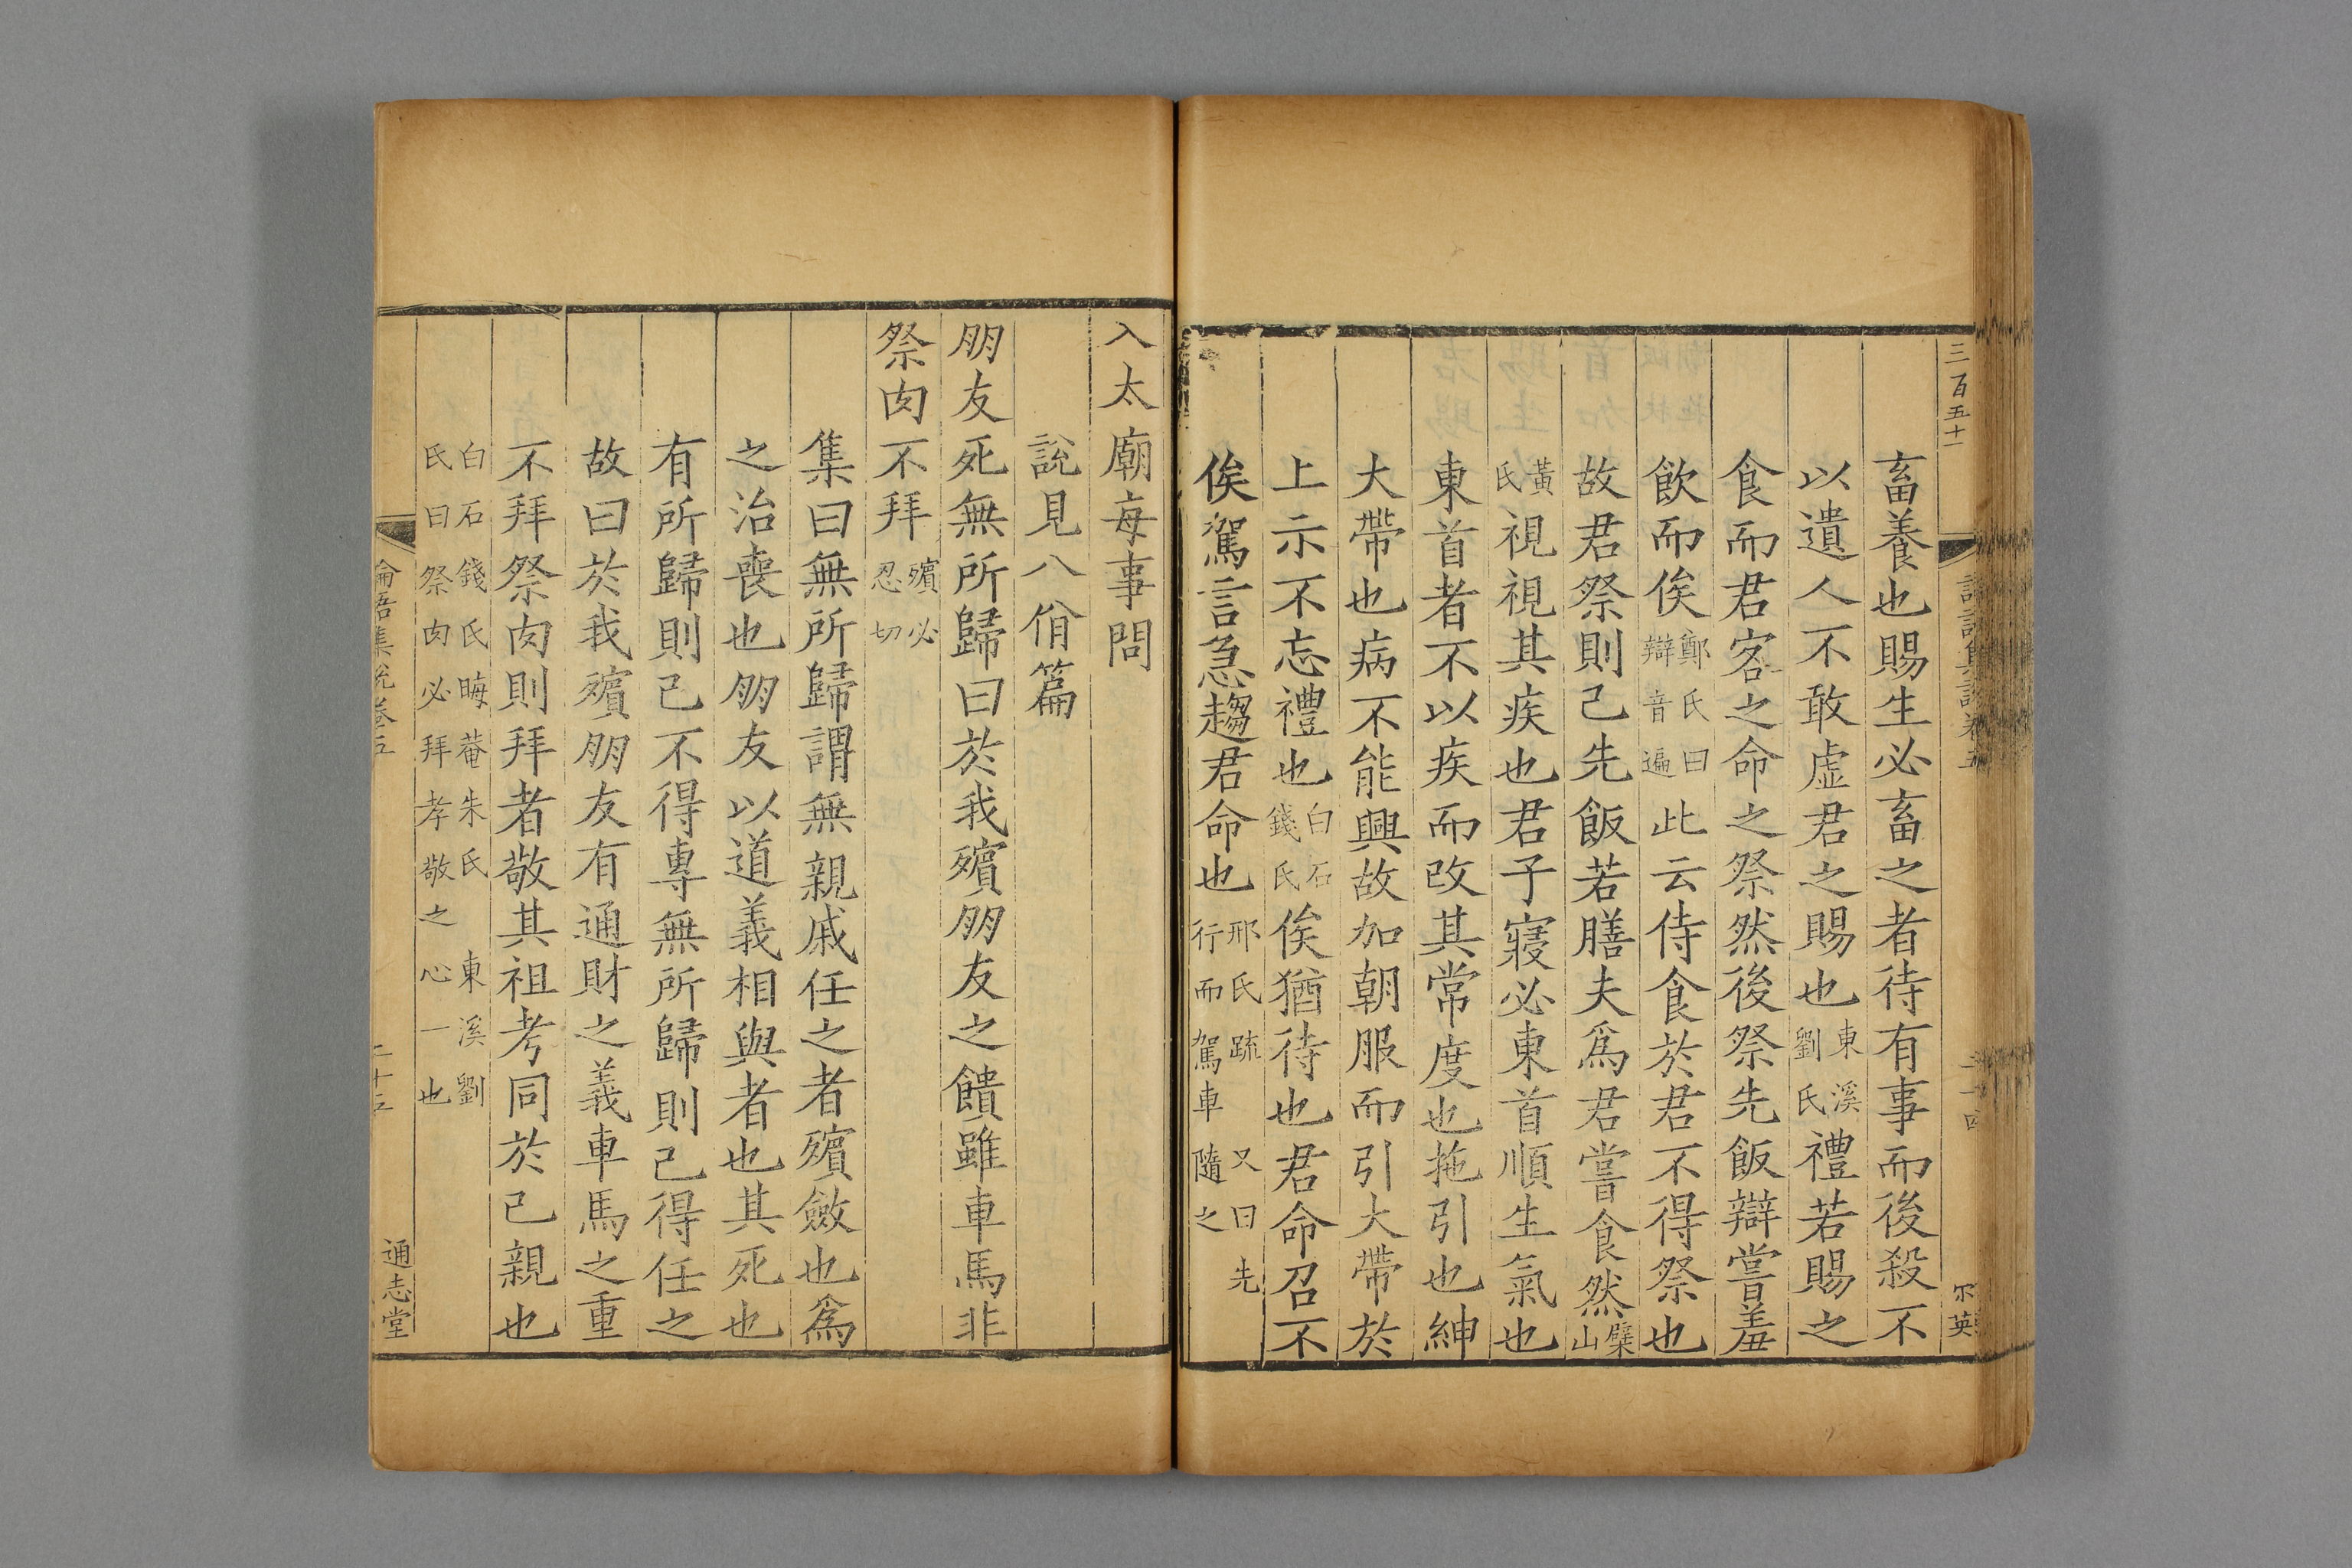 三百五十一
畜養也賜生必畜之者待有事而後殺不
以遺人不敢虛君之賜也東溪劉氏禮若賜之
食而君客之命之祭然後祭先飯辯嘗羞
飲而俟鄭氏曰辯音遍此云侍食於君不得祭也
故君祭則己先飯若膳夫爲君嘗食然檗山
黃氏視視其疾也君子寢必東首順生氣也
東首者不以疾而改其常度也拖引也紳
大帶也病不能興故加朝服而引大帶於
上示不忘禮也白石錢氏俟猶待也君命召不
俟駕言急趨君命也邢氏疏又曰先行而駕車隨之
入太廟每事問
說見八佾篇
朋友死無所歸曰於我殯朋友之饋雖車馬非
祭肉不拜殯必忍切
集曰無所歸謂無親戚任之者殯斂也爲
之治喪也朋友以道義相與者也其死也
有所歸則己不得專無所歸則己得任之
故曰於我殯朋友有通財之義車馬之重
不拜祭肉則拜者敬其祖考同於己親也
白石錢氏晦菴朱氏東溪劉氏曰祭肉必拜孝敬之心一也
論語集說卷五
通志堂